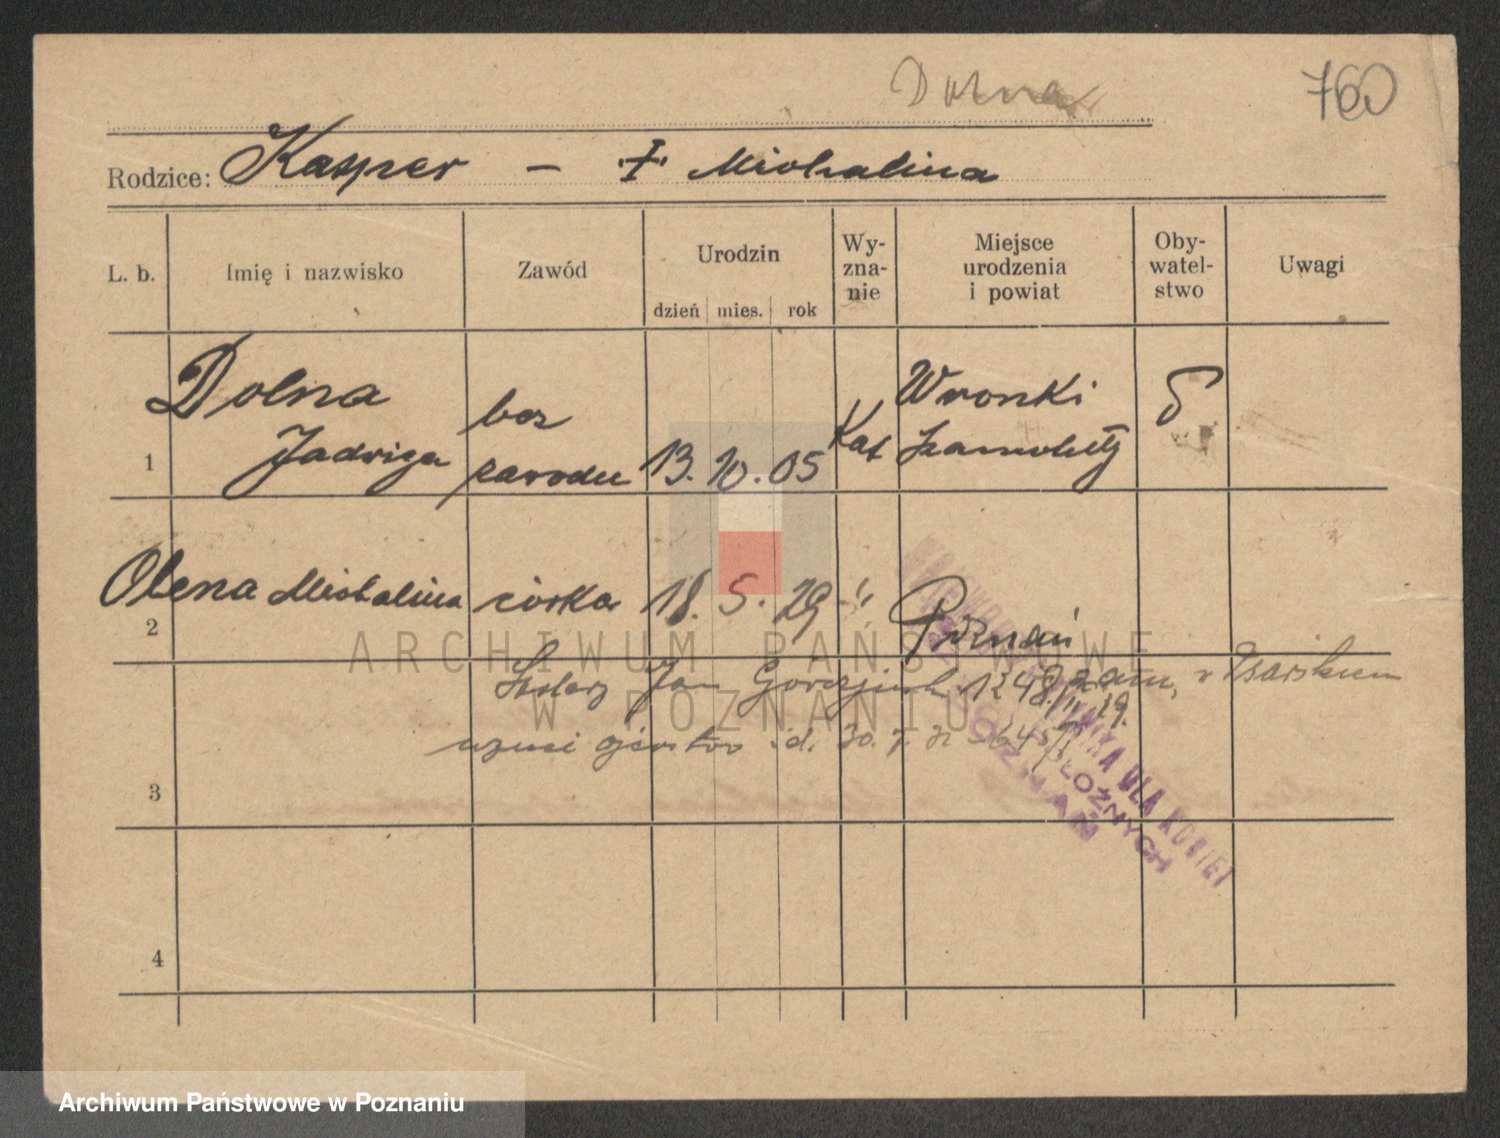 Dolna
760
Rodzice: Kasper – I. Michalina
L. b.
Imię i nazwisko
Zawód
Urodzin
dzień mies. rok
Wy-
zna-
nie
Miejsce
urodzenia
i powiat
Oby-
watel-
stwo
Uwagi
1
Dolna
Jadwiga
bez
zawodu
13. 10. 05
Kat
Wronki
Szamotuły
2
Olena Michalina
córka
18. 5. 29
-"
Poznań
Jan
3
uznał ojcostwo
4
DLA KOBIET
POŁOŻNYCH
POZNAŃ
ARCHIWUM PAŃSTWOWE
W POZNANIU
Archiwum Państwowe w Poznaniu